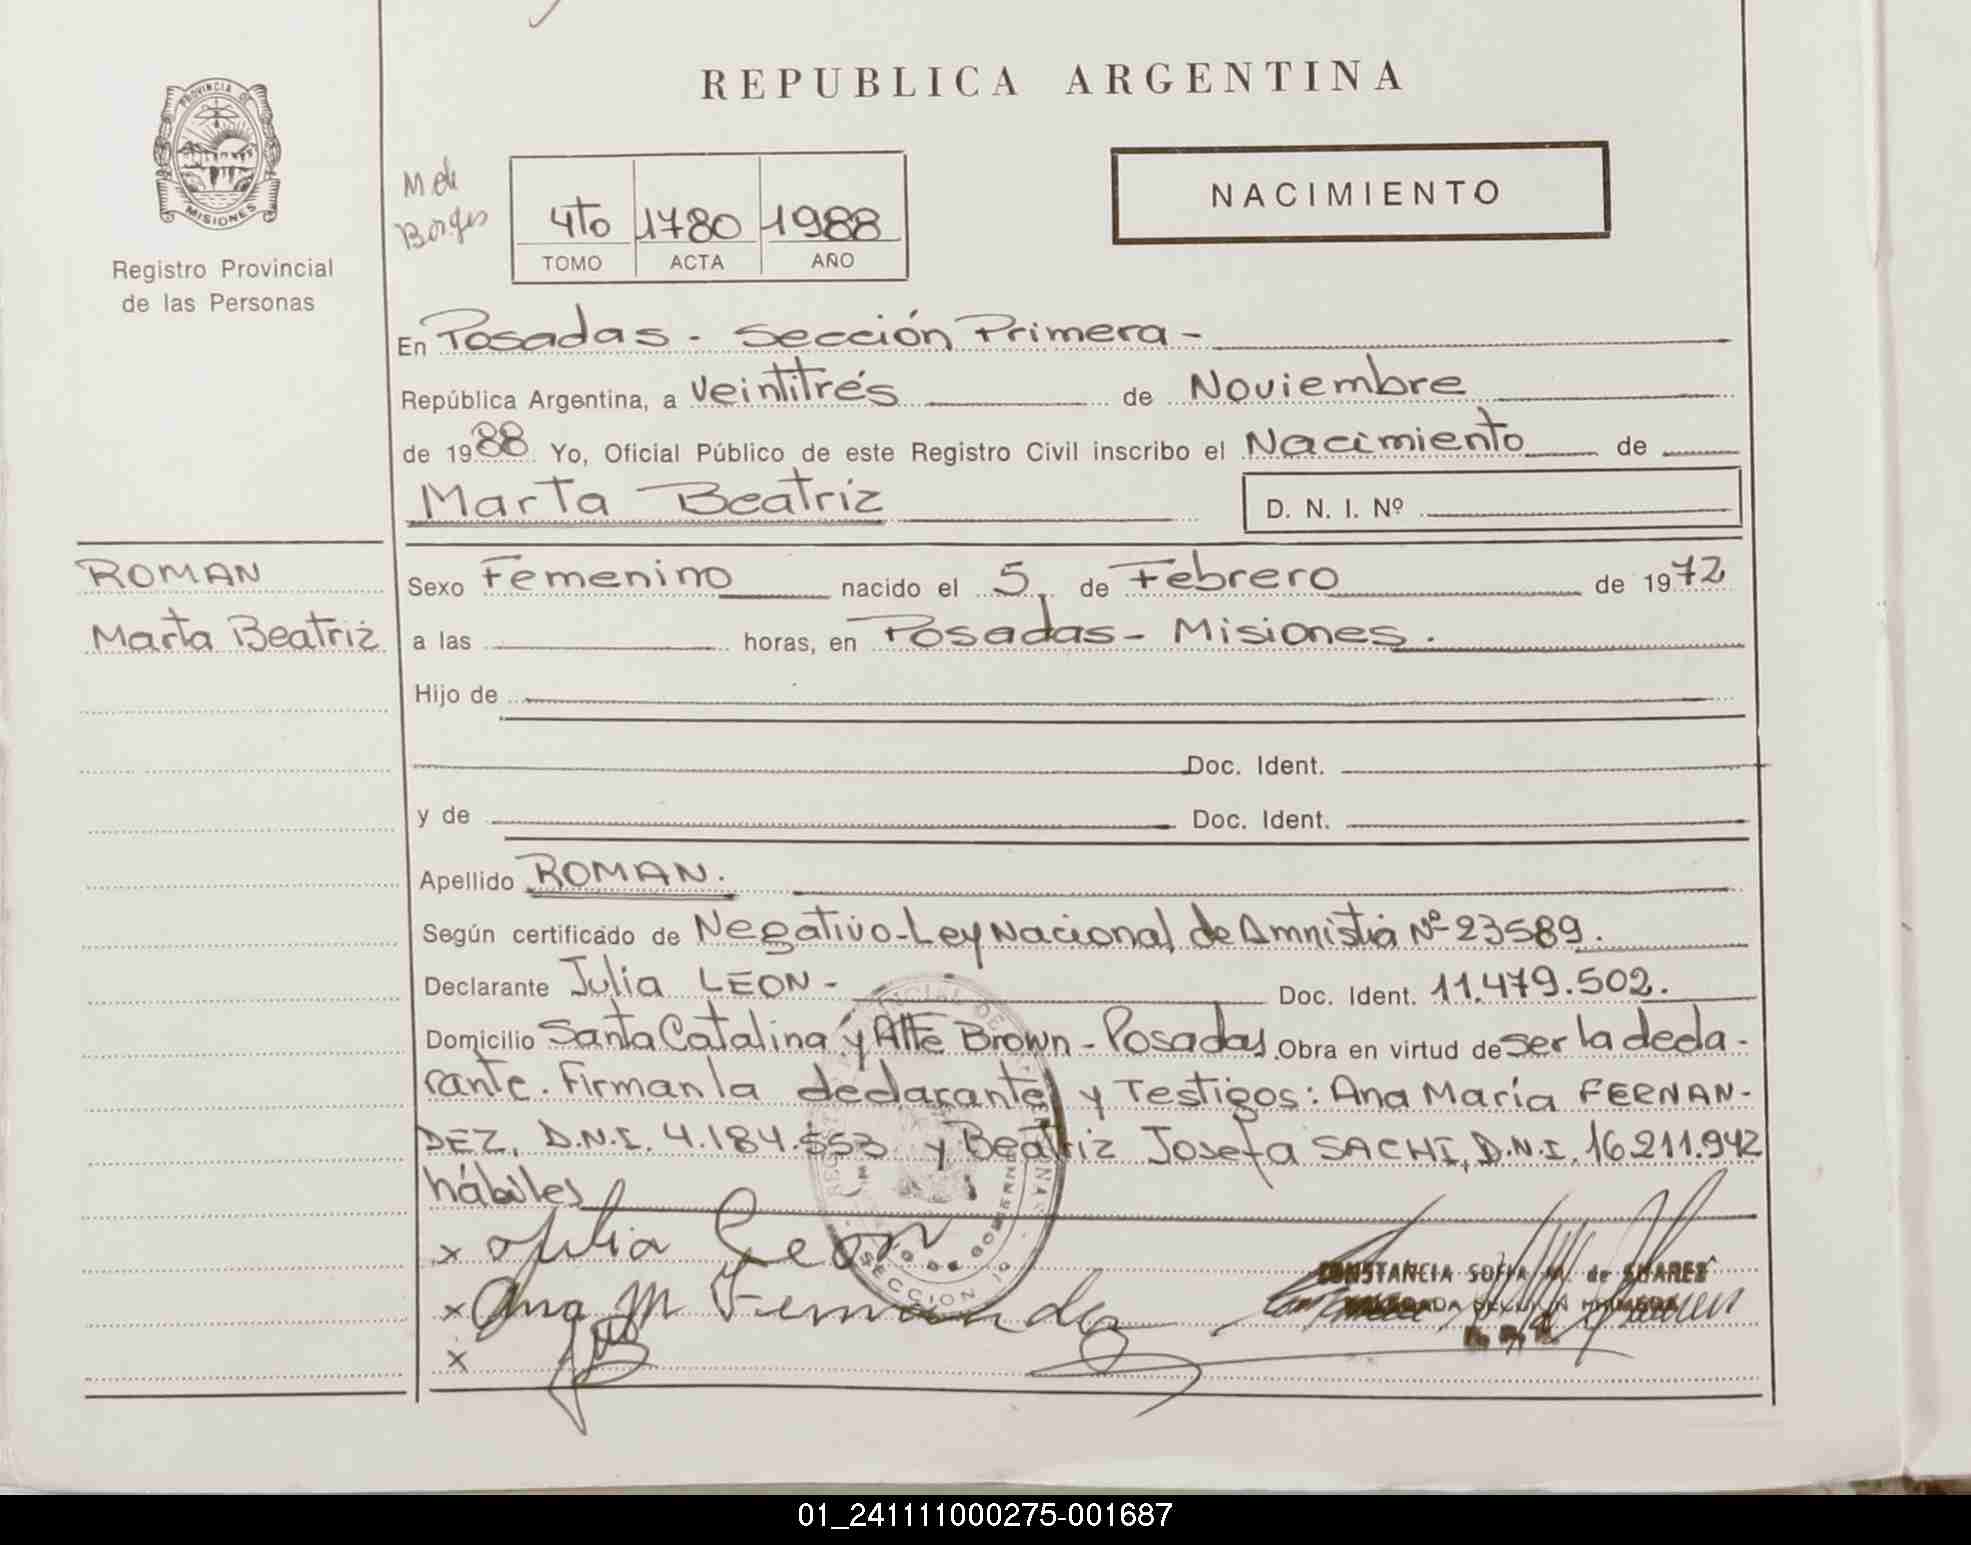 REPUBLICA ARGENTINA
PROVINCIA DE
MISIONES
Registro Provincial
de las Personas
M de
Borges
4to 1780 1988
TOMO ACTA AÑO
NACIMIENTO
En Posadas - Sección Primera -
República Argentina, a veintitrés de Noviembre
de 1988 Yo, Oficial Público de este Registro Civil inscribo el Nacimiento de
Marta Beatriz D. N. I. Nº
ROMAN
Marta Beatriz
Sexo Femenino nacido el 5 de Febrero de 1972
a las horas, en Posadas - Misiones.
Hijo de
Doc. Ident.
y de Doc. Ident.
Apellido ROMAN.
Según certificado de Negativo-Ley Nacional de Amnistia Nº 23589.
Declarante Julia LEON - Doc. Ident. 11.479.502.
Domicilio Santa Catalina y Alte Brown - Posadas. Obra en virtud de ser la decla-
rante. Firman la declarante y Testigos: Ana María FERNAN-
DEZ, D.N.I. 4.184.553 y Beatriz Josefa SACHI, D.N.I. 16.211.942
hábiles
x Julia Leon
x Ana M Fernandez
x
CONSTANCIA SOFIA M. de SUAREZ
SECCION
01_241111000275-001687